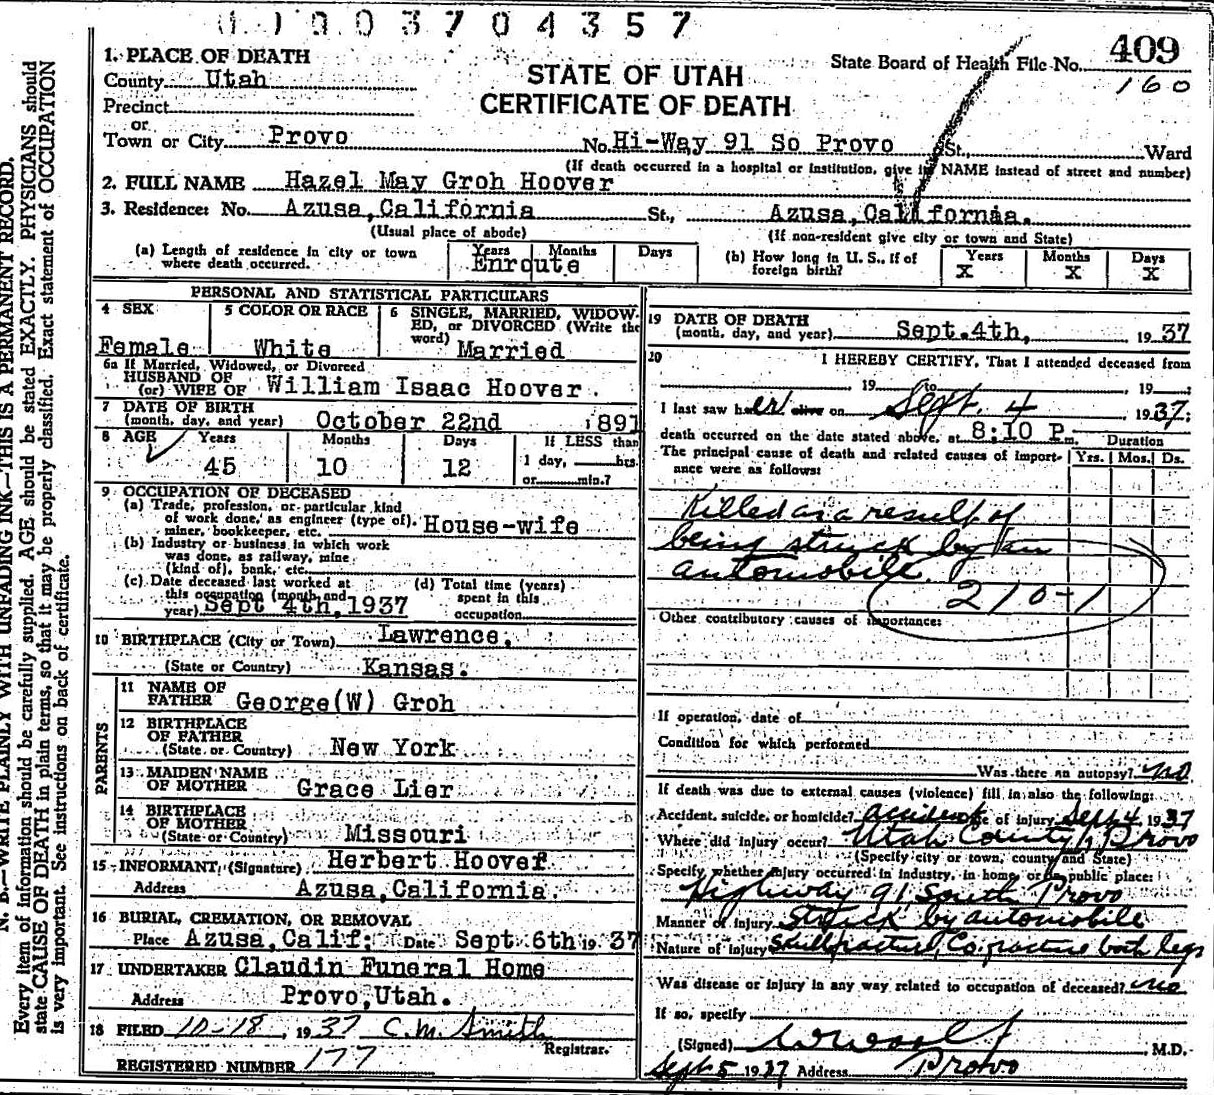 003704357
State Board of Health File No. 409
160
STATE OF UTAH
CERTIFICATE OF DEATH
1. PLACE OF DEATH
County Utah
Precinct
or
Town or City Provo No. Hi-Way 91 So Provo St., Ward
(If death occurred in a hospital or institution, give its NAME instead of street and number)
2. FULL NAME Hazel May Groh Hoover
3. Residence: No. Azusa, California St., Azusa, California.
(Usual place of abode) (If non-resident give city or town and State)
(a) Length of residence in city or town where death occurred. Years Months Days
Enroute
(b) How long in U. S., if of foreign birth? Years Months Days
X X X
PERSONAL AND STATISTICAL PARTICULARS
4 SEX
Female
5 COLOR OR RACE
White
6 SINGLE, MARRIED, WIDOW-
ED, or DIVORCED (Write the
word) Married
6a If Married, Widowed, or Divorced
HUSBAND OF
(or) WIFE OF William Isaac Hoover
7 DATE OF BIRTH
(month, day, and year) October 22nd 1891
8 AGE Years Months Days If LESS than
45 10 12 1 day, hrs.
or min.?
9 OCCUPATION OF DECEASED
(a) Trade, profession, or particular kind
of work done, as engineer (type of),
miner, bookkeeper, etc. House-wife
(b) Industry or business in which work
was done, as railway, mine
(kind of), bank, etc.
(c) Date deceased last worked at
this occupation (month and
year) Sept 4th, 1937
(d) Total time (years)
spent in this
occupation
10 BIRTHPLACE (City or Town) Lawrence,
(State or Country) Kansas.
PARENTS
11 NAME OF
FATHER George(W) Groh
12 BIRTHPLACE
OF FATHER
(State or Country) New York
13 MAIDEN NAME
OF MOTHER Grace Lier
14 BIRTHPLACE
OF MOTHER
(State or Country) Missouri
15 INFORMANT (Signature) Herbert Hoover
Address Azusa, California.
16 BURIAL, CREMATION, OR REMOVAL
Place Azusa, Calif: Date Sept 6th 19 37
17 UNDERTAKER Claudin Funeral Home
Address Provo, Utah.
18 FILED 10-18, 1937 C. M. Smith
Registrar.
REGISTERED NUMBER 177
19 DATE OF DEATH
(month, day, and year) Sept. 4th, 19 37
20 I HEREBY CERTIFY, That I attended deceased from
, 19 to , 19 ;
I last saw her alive on Sept. 4, 1937;
death occurred on the date stated above, at 8:10 P m.
The principal cause of death and related causes of import-
ance were as follows:
Duration
Yrs. Mos. Ds.
Killed as a result of
being struck by an
automobile.
210-1
Other contributory causes of importance:
If operation, date of
Condition for which performed
Was there an autopsy? no
If death was due to external causes (violence) fill in also the following:
Accident, suicide, or homicide? accident of injury Sept 4 1937
Where did injury occur? Utah County, Provo
(Specify city or town, county and State)
Specify whether injury occurred in industry, in home, or in public place:
Highway 91, South Provo
Manner of injury struck by automobile
Nature of Injury Skull fracture, Co. fracture both legs
Was disease or injury in any way related to occupation of deceased? no
If so, specify
(Signed) M.D.
Sept 5 1937 Address Provo
N. B.—WRITE PLAINLY WITH UNFADING INK—THIS IS A PERMANENT RECORD.
Every item of information should be carefully supplied. AGE should be stated EXACTLY. PHYSICIANS should
state CAUSE OF DEATH in plain terms, so that it may be properly classified. Exact statement of OCCUPATION
is very important. See instructions on back of certificate.